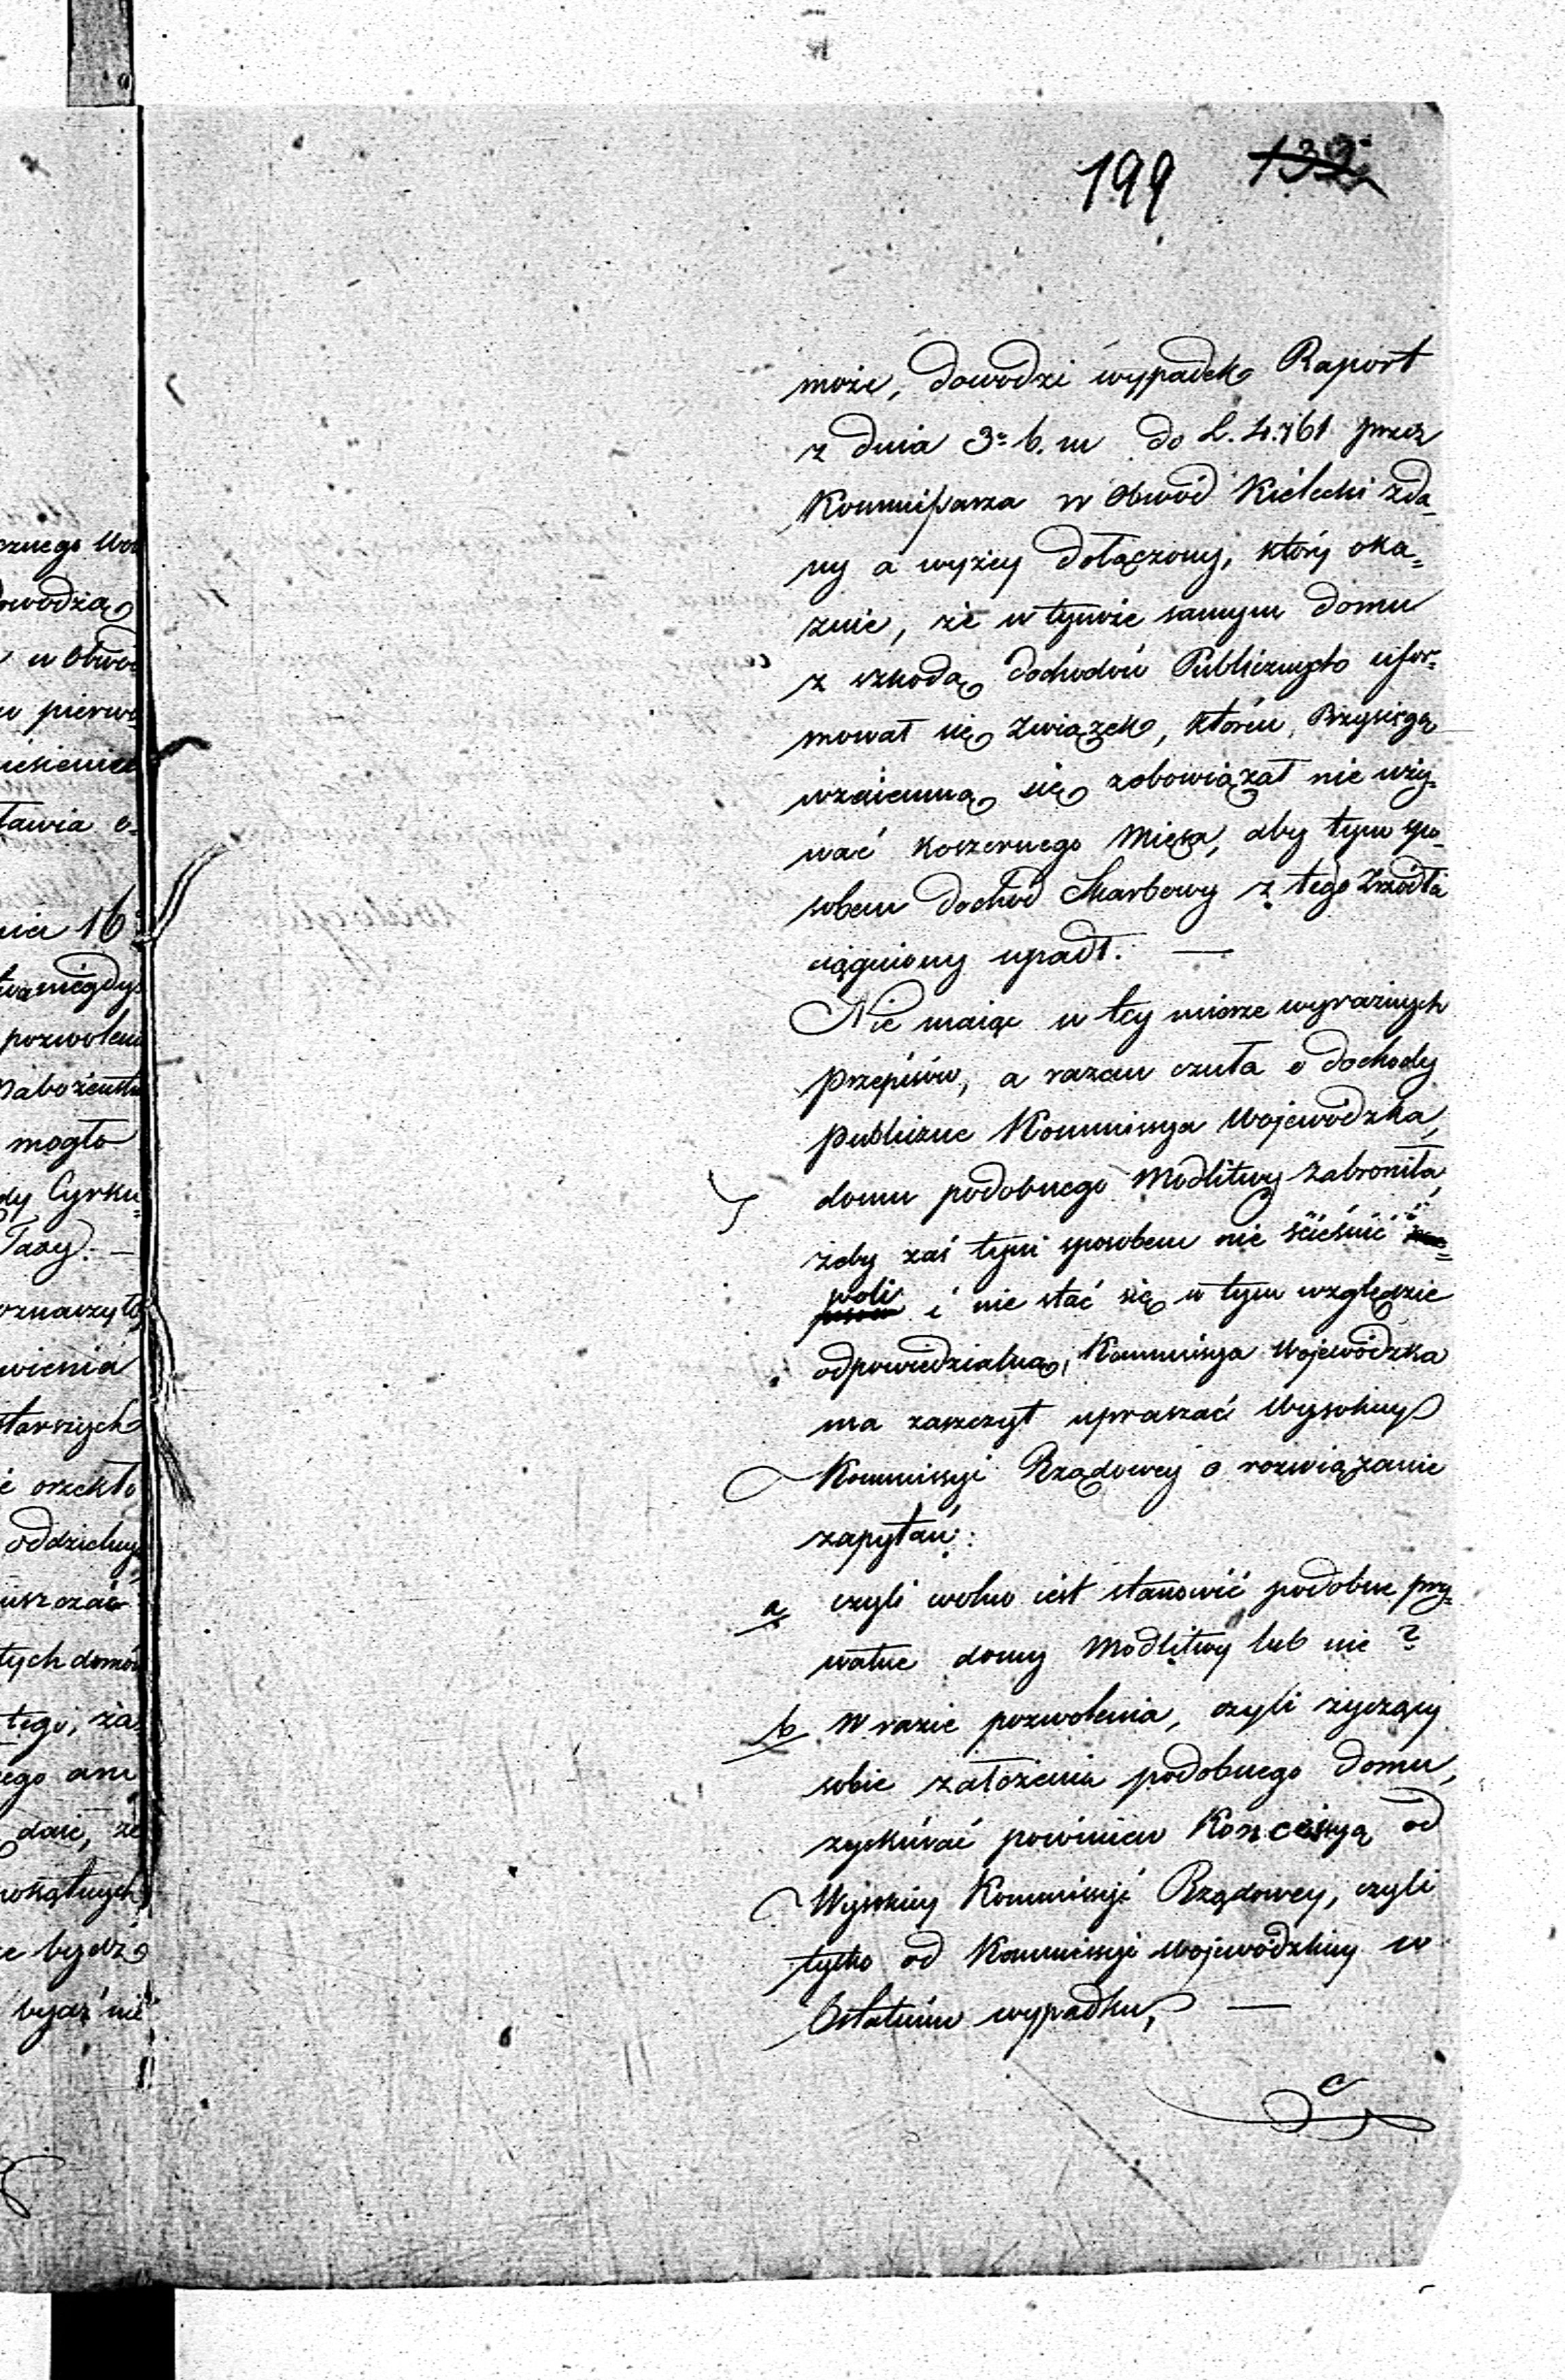 199 132
może, dowodzi wypadek Raport
z dnia 3º b. m do L. 4.761 przez
Kommissarza w Obwód Kielecki zda-
ny a wyżey dołączony, który oka-
zuie, że w tymże samym domu
z szkodą dochodów Publicznych ufor-
mował się Związek, któren Przysięgą
wzaiemną się zobowiązał nie uży-
wać koszernego Mięsa, aby tym spo-
sobem dochód Skarbowy z tego Zrzódła
ciągniony upadł. —
Nie maiąc w tey mierze wyraźnych
przepisów, a razem czuła o dochody
publiczne Kommissya Wojewódzka,
domu podobnego Modlitwy zabroniła,
żeby zaś tym sposobem nie ścieśnić
woli i nie stać się w tym względzie
odpowiedzialną, Kommissya Wojewódzka
ma zaszczyt upraszać Wysokiey
Kommissyi Rządowey o rozwiązanie
zapytań:
a czyli wolno iest stanowić podobne pry-
watne domy Modlitwy lub nie?
b W razie pozwolenia, czyli życzący
sobie założenia podobnego domu,
zyskiwać powinien Koncessyą od
Wysokiey Kommissyi Rządowey, czyli
tylko od Kommissyi Wojewódzkiey w
Ostatnim wypadku, —
c
owodzą
w Obwo
w pierw
tawia o-
16
pozwolen
Nabożeństw
mogło
dy Cyrku
Taxy. —
wienia
starszych
ć orzekło
oddzielny
uszczać
tych domów
tego, za
ego ani
daie, że
e bydź
bydź nie